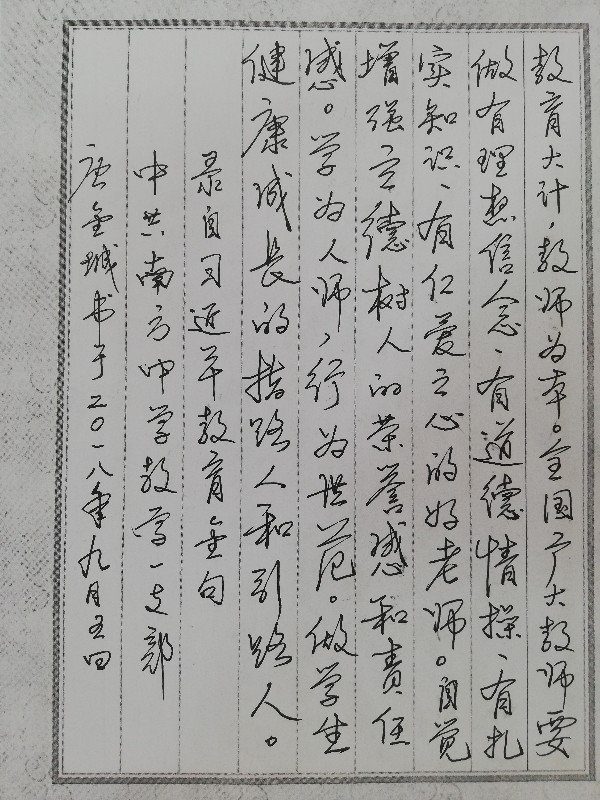 教育大计，教师为本。全国广大教师要
做有理想信念、有道德情操、有扎
实知识、有仁爱之心的好老师。自觉
增强立德树人的荣誉感和责任
感。学为人师，行为世范。做学生
健康成长的指路人和引路人。
录自习近平教育金句
中共南方中学教学一支部
唐金城书于二〇一八年九月五日